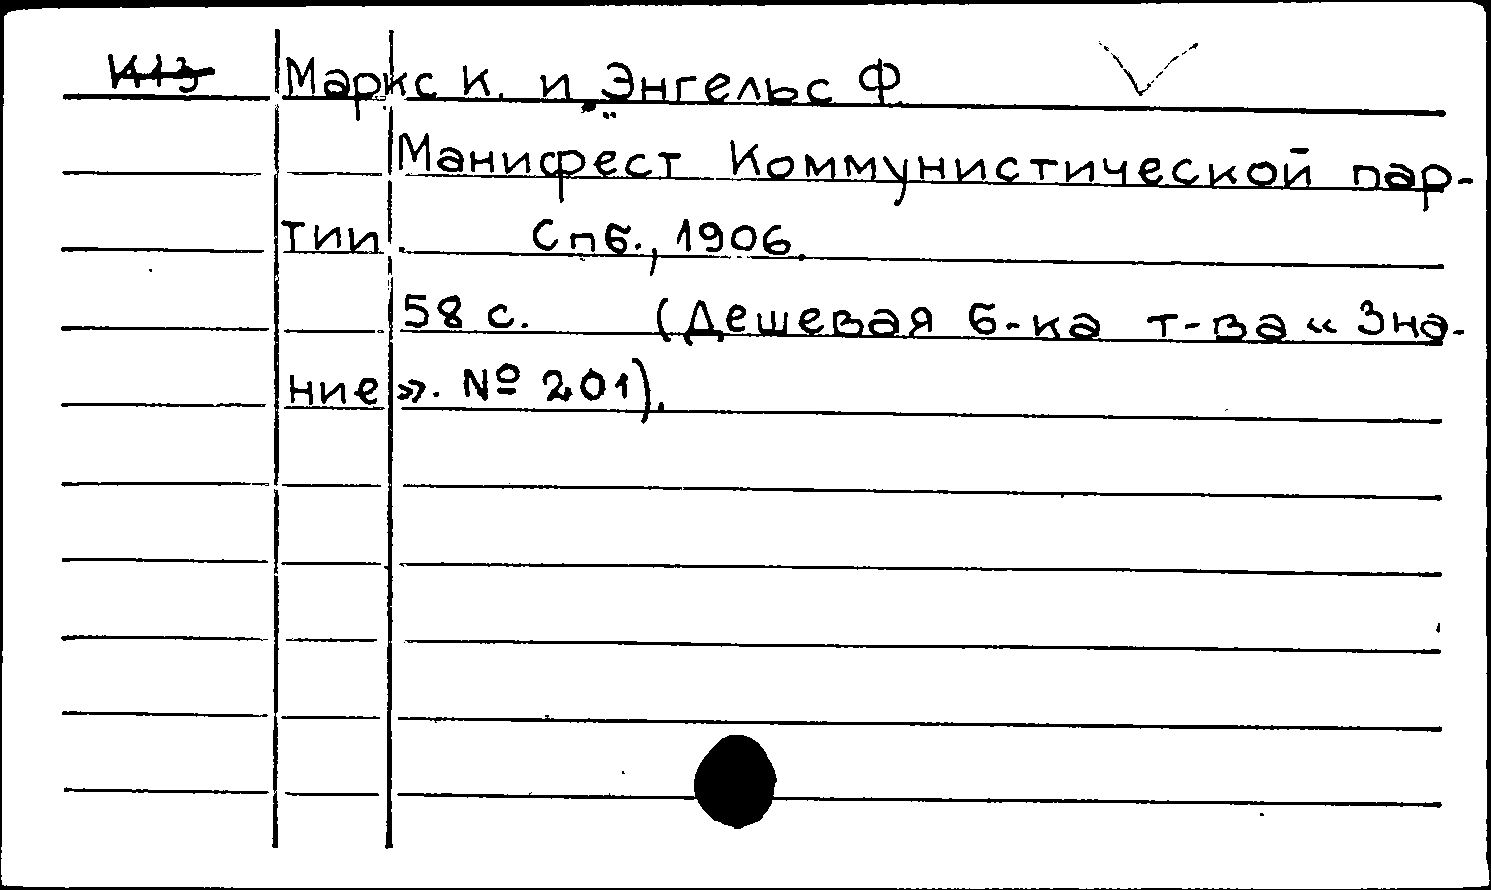 К13 Маркс К. и Энгельс Ф.
Манифест Коммунистической пар-
тии. Спб., 1906.
58 с. (Дешевая б-ка т-ва « Зна-
ние ». № 201).